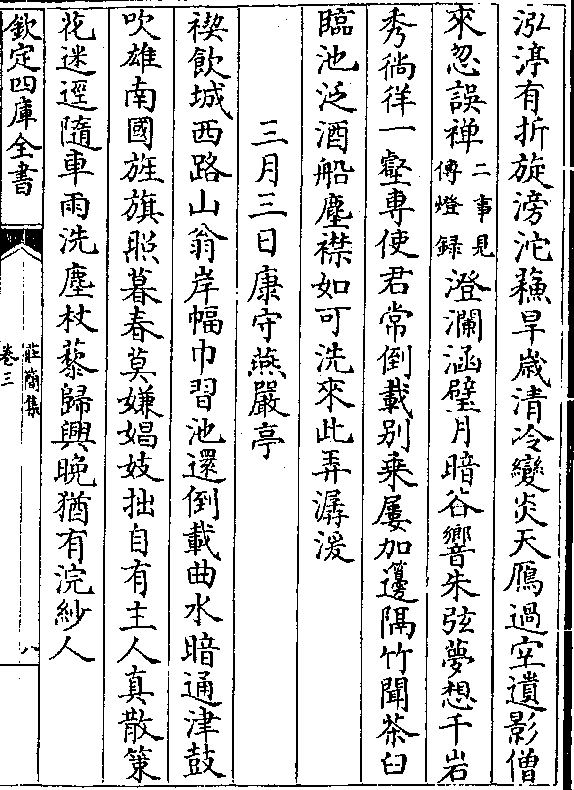 泓渟有折旋滂沱蘓旱歳清冷變炎天鴈過空遺影僧
來忽誤禪二事見傳燈録澄瀾涵璧月暗谷響朱弦夢想千岩
秀徜徉一壑專使君常倒載别乗屢加籩隔竹聞茶臼
臨池泛酒船塵襟如可洗來此弄潺湲
三月三日康守燕嚴亭
禊飲城西路山翁岸幅巾習池還倒載曲水暗通津鼓
吹雄南國旌旗照暮春莫嫌娼妓拙自有主人真散策
花迷逕隨車雨洗塵杖藜歸興晚猶有浣紗人
欽定四庫全書
莊簡集
卷三
八